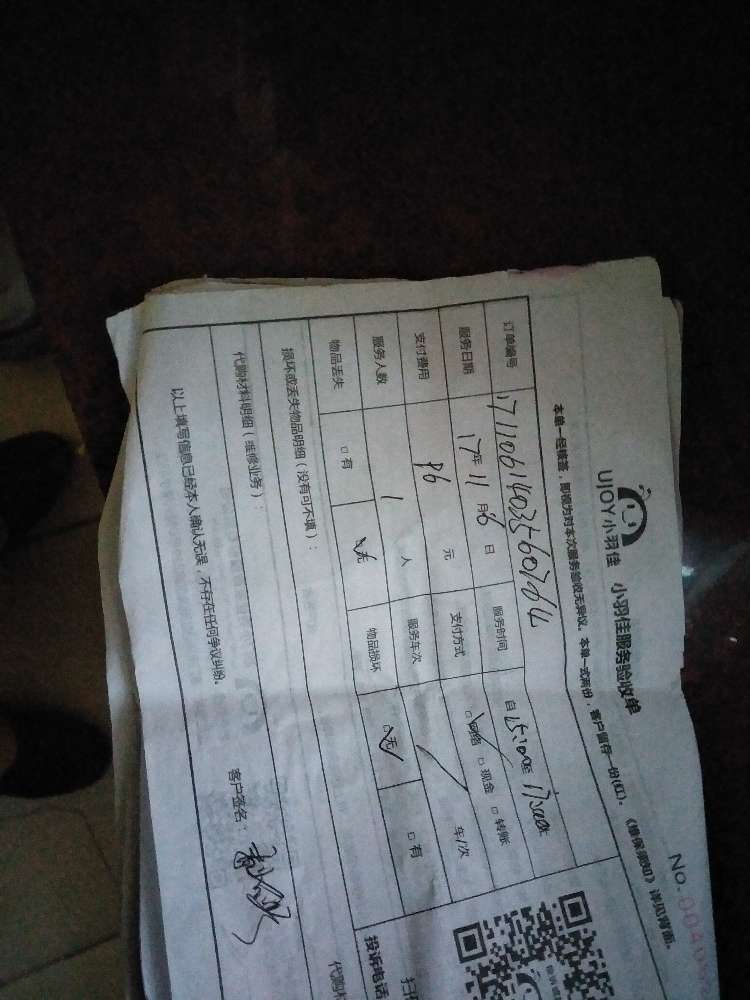 No. 004
UJOY小羽佳 小羽佳服务验收单
本单一经核签，即视为对本次服务验收无异议。本单一式两份，客户留存一份(红)。《维保须知》详见背面。
订单编号
服务时间 自15:00至17:00止
服务日期 17年11月6日 支付方式 ☑网络 □现金 □转账
支付费用 86元 服务车次 / 车/次
服务人数 1人 物品损坏 ☑无 □有
物品丢失 □有 ☑无
损坏或丢失物品明细（没有可不填）：
代购材料明细（维修业务）：
以上填写信息已经本人确认无误，不存在任何争议纠纷。
客户签名：
投诉电话
代购